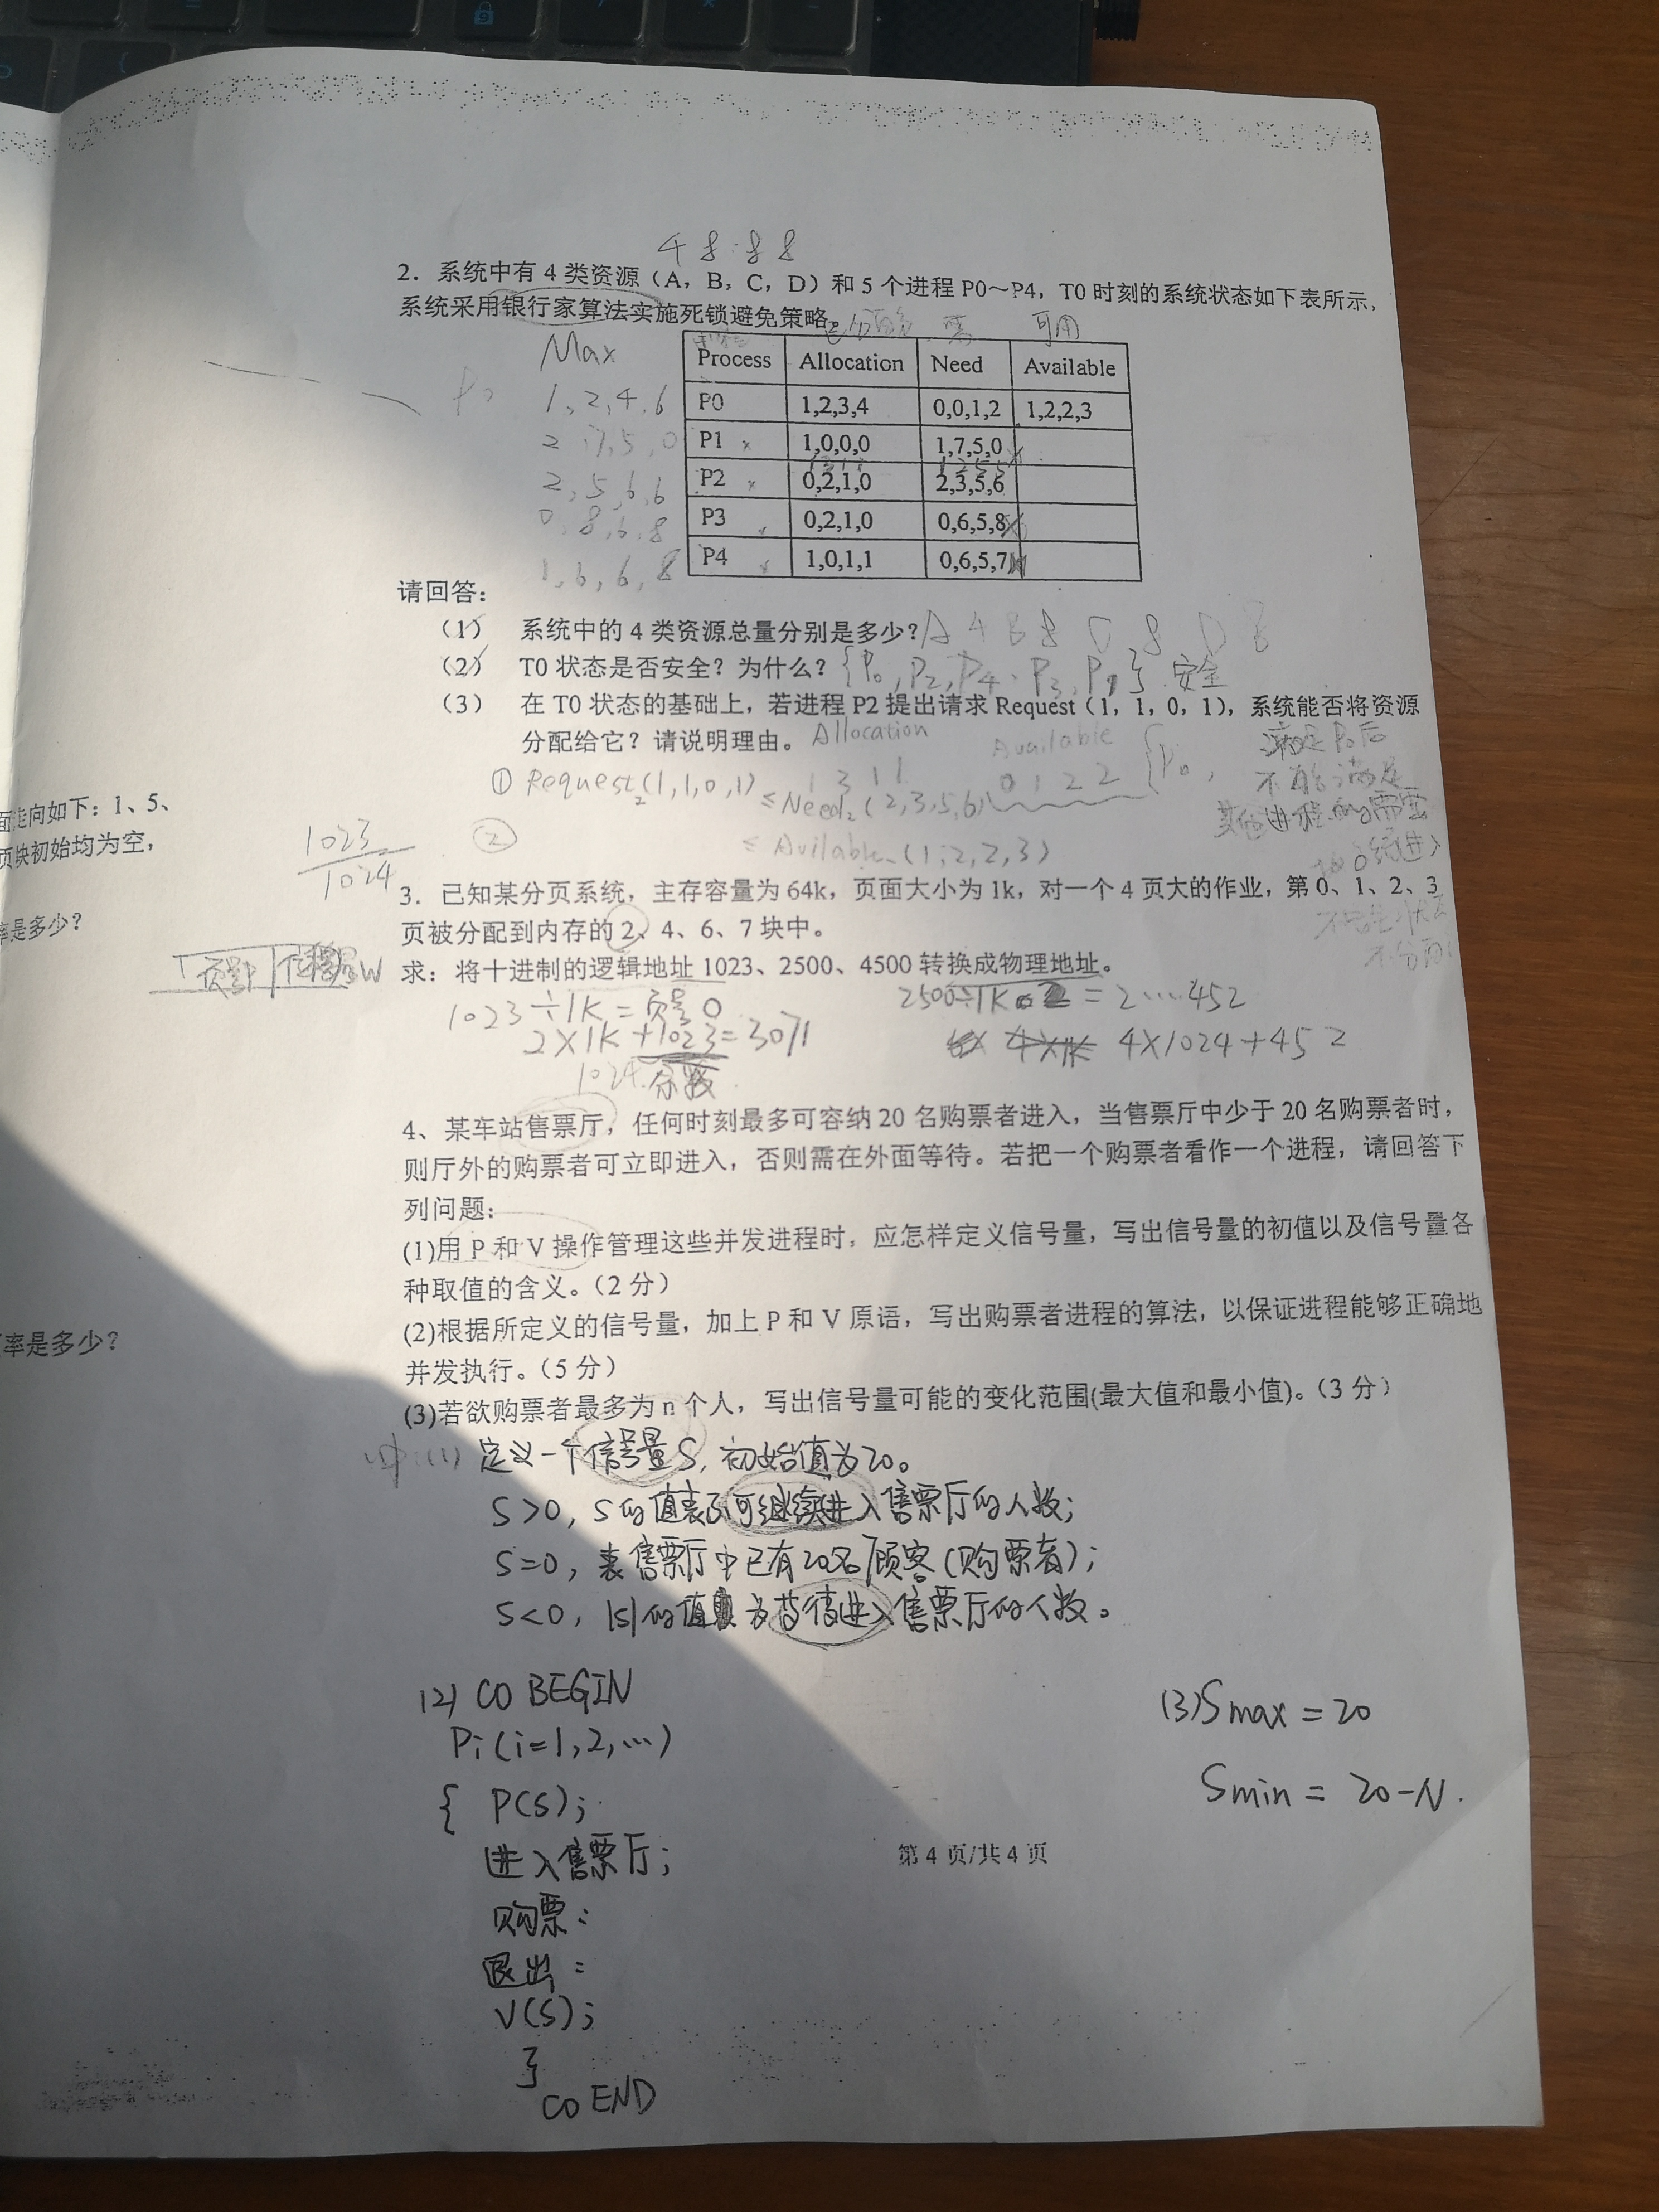 4 8 8 8
2. 系统中有 4 类资源（A，B，C，D）和 5 个进程 P0～P4，T0 时刻的系统状态如下表所示，
系统采用银行家算法实施死锁避免策略。
需 可用
Max
Process Allocation Need Available
1,2,4,6 P0 1,2,3,4 0,0,1,2 1,2,2,3
2,7,5,0 P1 1,0,0,0 1,7,5,0
2,5,6,6 P2 0,2,1,0 2,3,5,6
0,8,6,8 P3 0,2,1,0 0,6,5,8
1,6,6,8 P4 1,0,1,1 0,6,5,7
请回答：
（1） 系统中的 4 类资源总量分别是多少？A 4 B 8 C 8 D 8
（2） T0 状态是否安全？为什么？{P0, P2, P4, P3, P1} 安全
（3） 在 T0 状态的基础上，若进程 P2 提出请求 Request（1，1，0，1），系统能否将资源
分配给它？请说明理由。 Allocation Available {P0,
满足P0后
① Request2(1,1,0,1) ≤Need2(2,3,5,6) 1 3 1 1 0 1 2 2
不能满足
其他进程的需要
② ≤ Available (1,2,2,3)
面走向如下：1、5、
页块初始均为空，
率是多少？
1023
1024
3. 已知某分页系统，主存容量为 64k，页面大小为 1k，对一个 4 页大的作业，第 0、1、2、3
页被分配到内存的 2、4、6、7 块中。
页号P 位移量W
求：将十进制的逻辑地址 1023、2500、4500 转换成物理地址。
1023÷1K=页号0
2500÷1K = 2…452
2×1K+1023=3071
4×1024+452
1024 余数
4、某车站售票厅，任何时刻最多可容纳 20 名购票者进入，当售票厅中少于 20 名购票者时，
则厅外的购票者可立即进入，否则需在外面等待。若把一个购票者看作一个进程，请回答下
列问题：
(1)用 P 和 V 操作管理这些并发进程时，应怎样定义信号量，写出信号量的初值以及信号量各
种取值的含义。（2 分）
(2)根据所定义的信号量，加上 P 和 V 原语，写出购票者进程的算法，以保证进程能够正确地
并发执行。（5 分）
率是多少？
(3)若欲购票者最多为 n 个人，写出信号量可能的变化范围(最大值和最小值)。（3 分）
(1) 定义一个信号量S, 初始值为20。
S>0, S的值表示可继续进入售票厅的人数;
S=0, 表售票厅中已有20名顾客(购票者);
S<0, |S|的值为等待进入售票厅的人数。
(2) CO BEGIN
Pi(i=1,2,…)
{ P(S);
进入售票厅;
购票:
退出:
V(S);
}
CO END
(3) Smax = 20
Smin = 20-N.
第 4 页/共 4 页